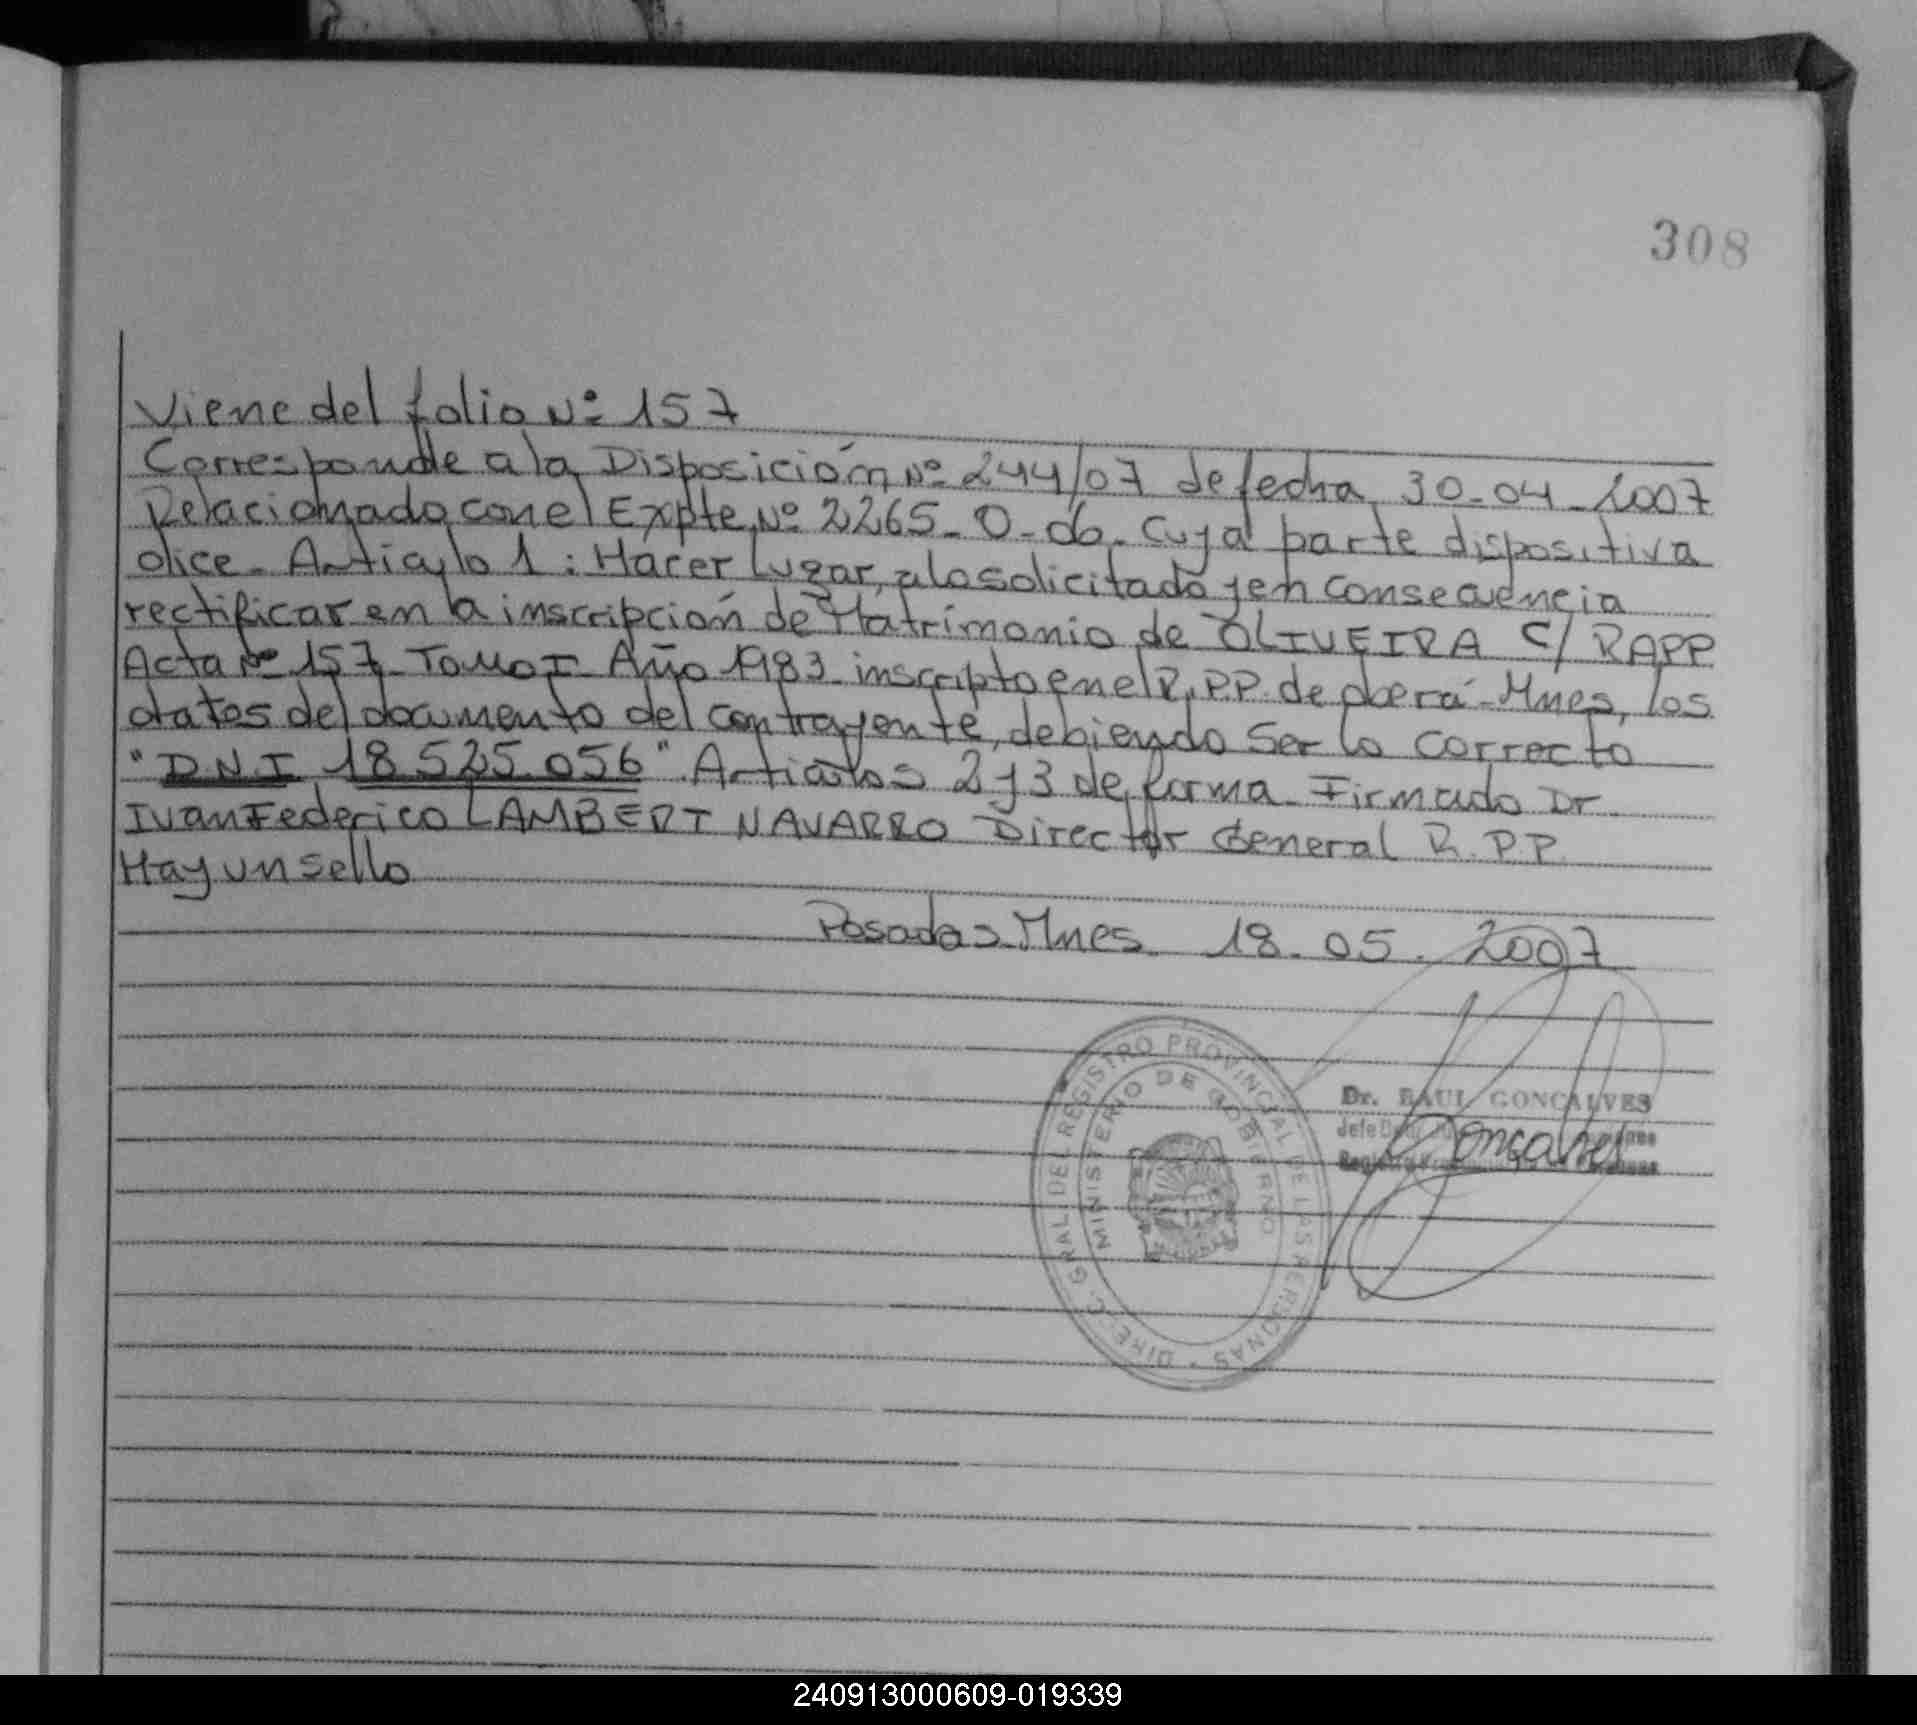 308
Viene del folio Nº 157
Corresponde a la Disposición Nº 244/07 de fecha 30-04-2007
Relacionado con el Expte Nº 2265-O-06. Cuya parte dispositiva
dice. Articulo 1: Hacer lugar, a lo solicitado y en consecuencia
rectificar en la inscripción de Matrimonio de OLIVEIRA C/ RAPP
Acta Nº 157 Tomo I Año 1983 inscripto en el R.P.P. de Oberá-Mnes, los
datos del documento del contrayente, debiendo ser lo correcto
"DNI 18.525.056". Articulos 2 y 3 de forma. Firmado Dr
Ivan Federico LAMBERT NAVARRO Director General R.P.P.
Hay un sello
Posadas Mnes. 18.05.2007
DIREC. GRAL. DEL REGISTRO PROVINCIAL DE LAS PERSONAS
MINISTERIO DE GOBIERNO
Dr. RAUL GONCALVES
Jefe
Goncalves
240913000609-019339